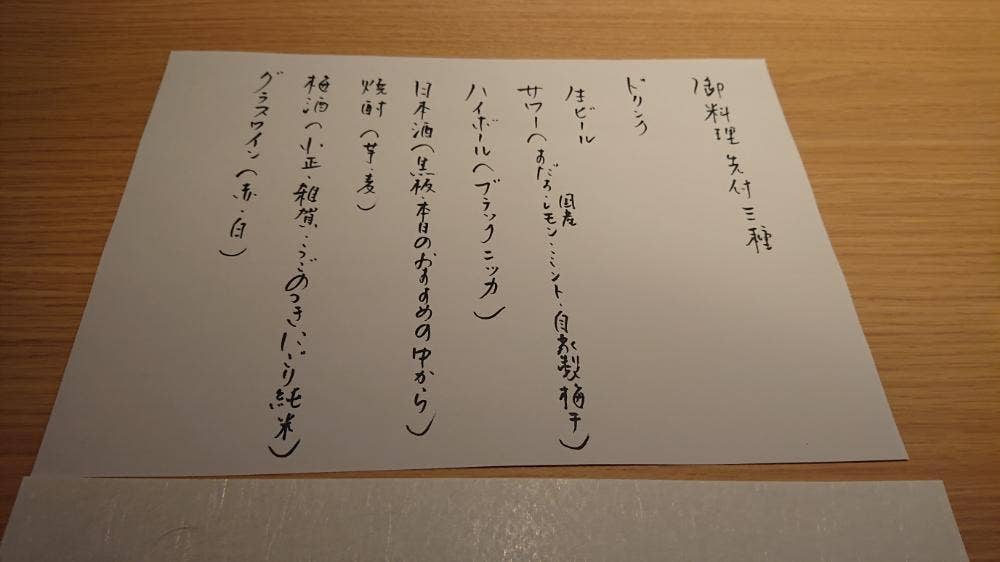 御料理 先付三種
ドリンク
生ビール
サワー(すだち・国産レモン・ミント・自家製梅干)
ハイボール(ブラックニッカ)
日本酒(黒板・本日のおすすめの中から)
焼酎(芋・麦)
梅酒(小正・雑賀・うごのつきにごり純米)
グラスワイン(赤・白)